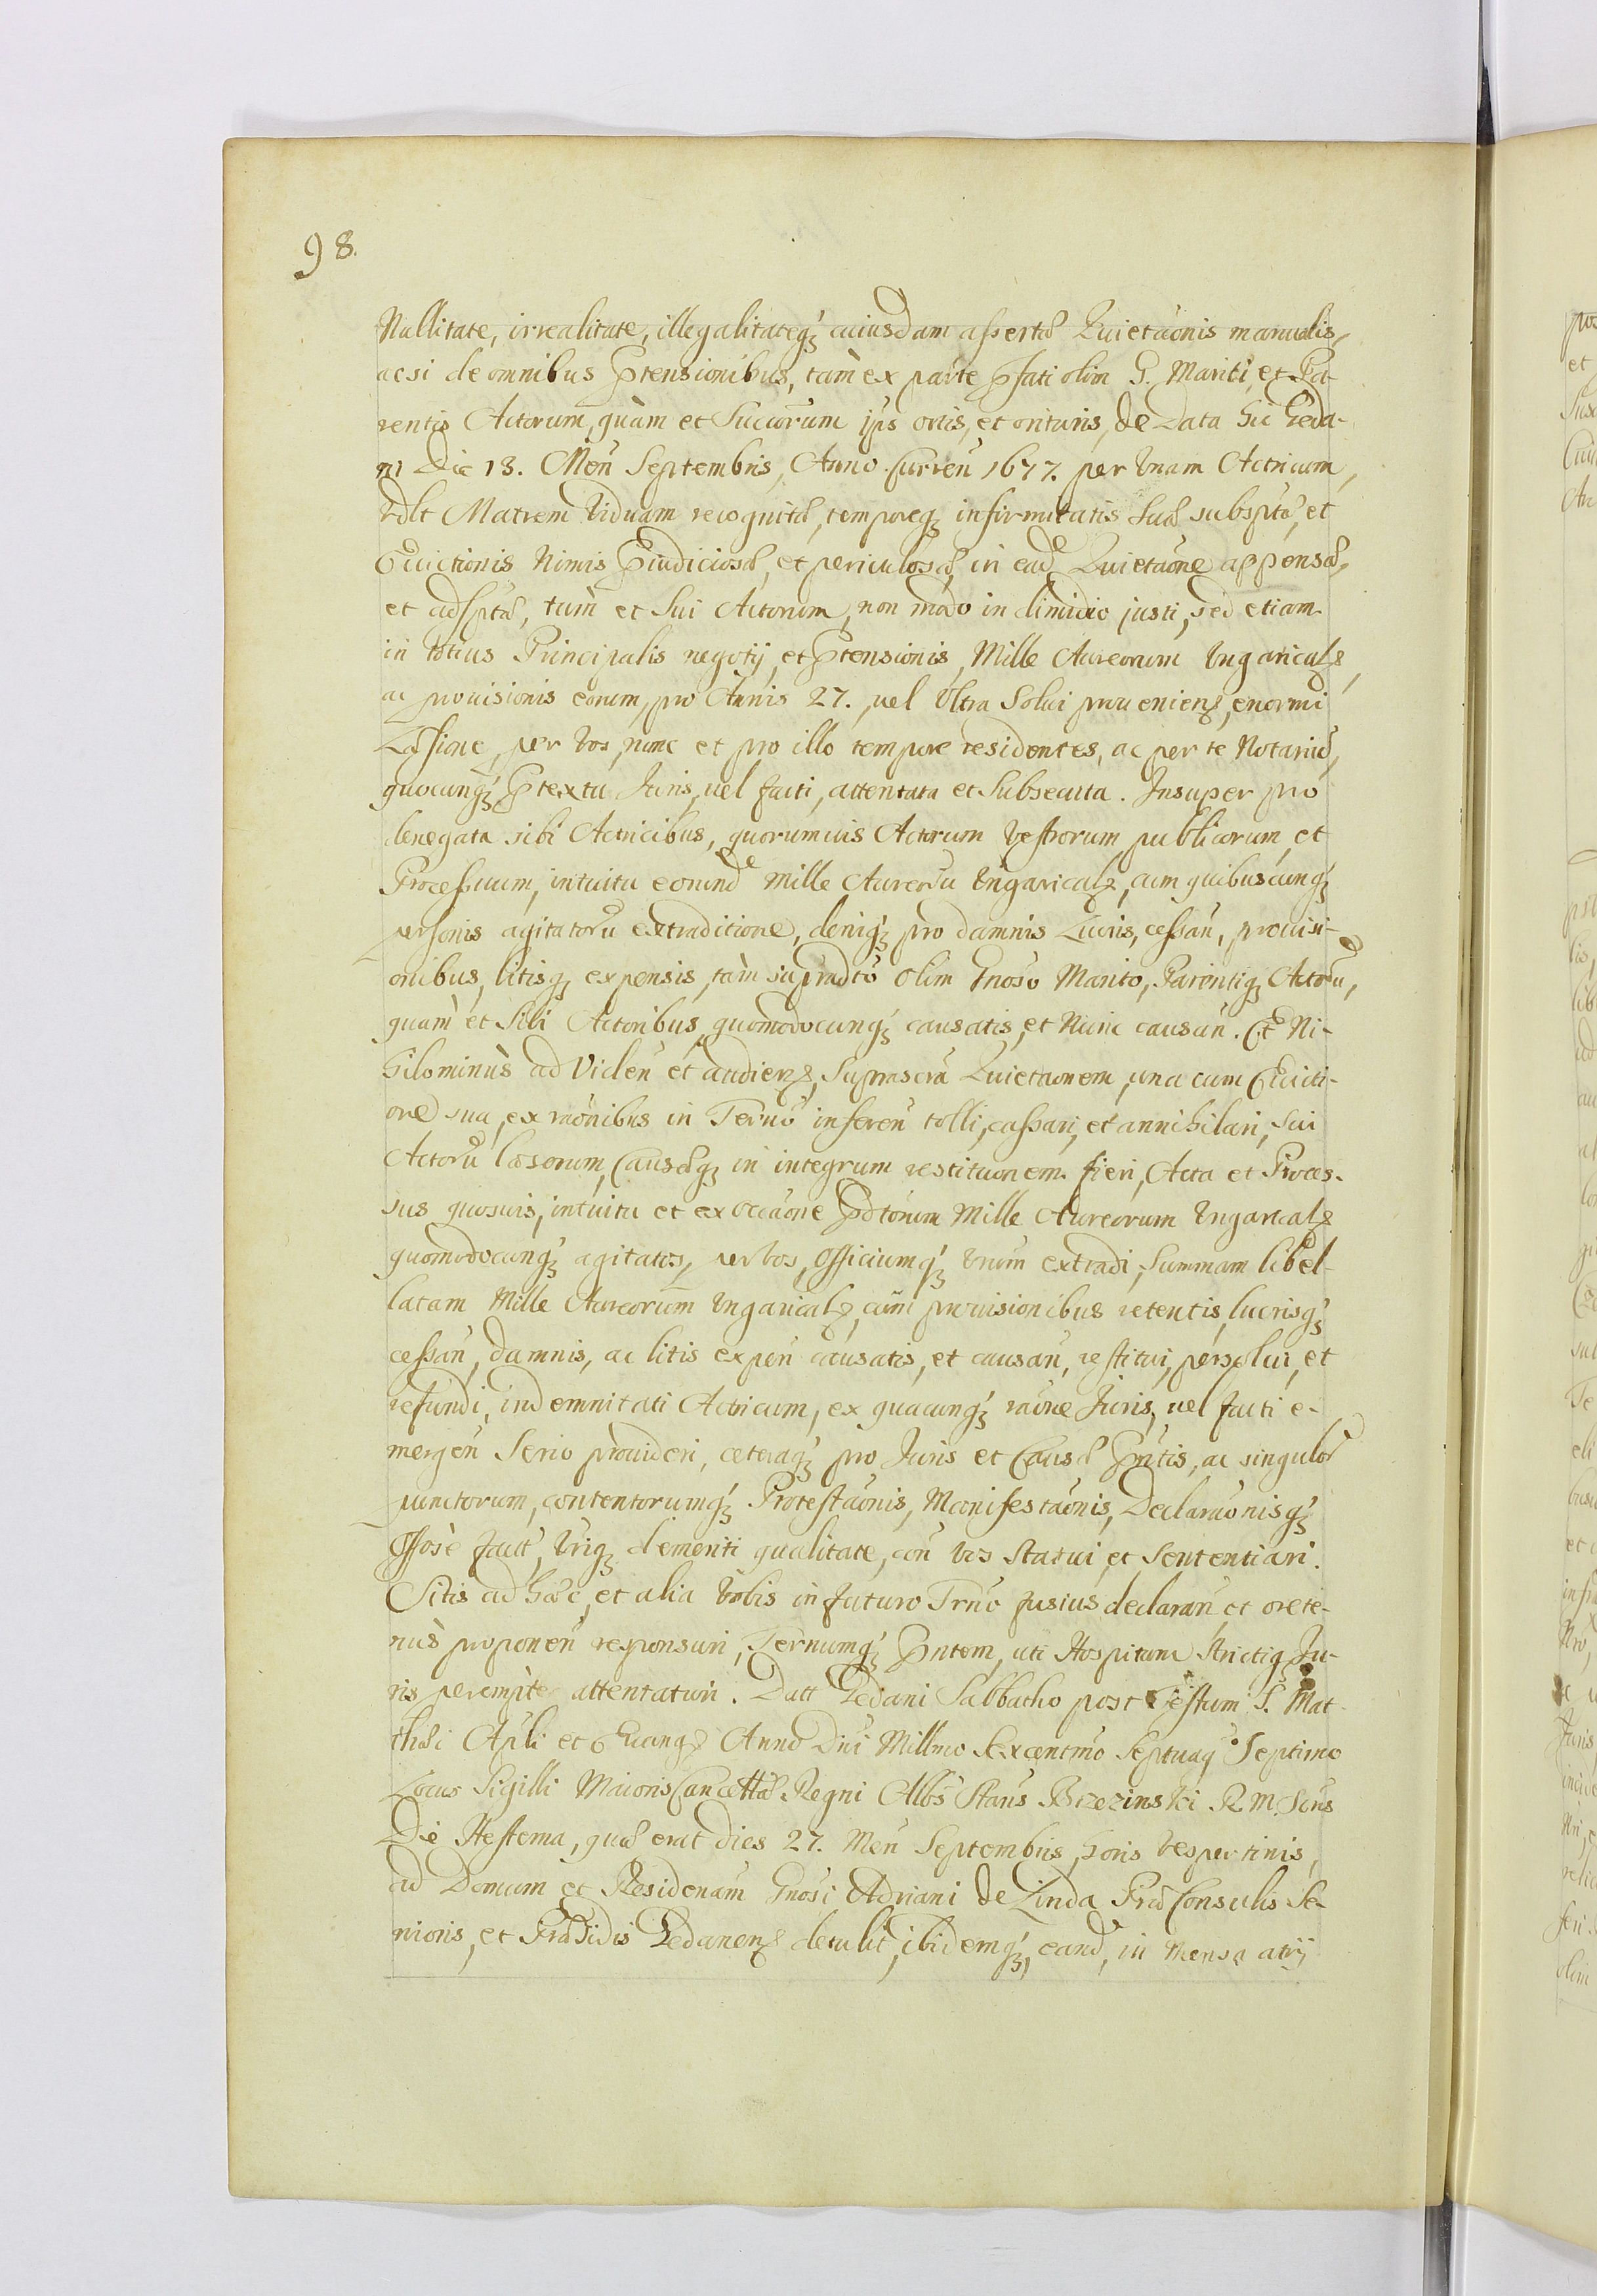 98.
Nullitate, irrealitate, illegalitateq́ʒ cuiusdam assertæ Quietaōnis manualis,
acsi de omnibus Prtensionibus, tàm ex parte Prfati olim G. Mariti, et Pa-
rentis Actorum, quàm et Succorum ijs ortis, et orituris, de Data hic Geda-
ni Die 13. Men̄ Septembris, Anno Curren̄ 1677. per Vnam Actricum,
vdlt Matrem Viduam recognitæ, temporeqʒ infirmitatis suæ subsptæ, et
Evictionis Nimis Prjudiciosæ, et periculosæ, in ead̄ Quietaōne appensæ,
et adsptæ, tùm et Sui Actorum, non modo in dimidio justi, sed etiam
in totius Principalis negotij, et Prtensionis, Mille Aureorum Vngaricalꝫ,
ac provisionis eorum, pro Annis 27. vel Vltra Solui provenienꝫ, enormi
Læsione, per vos, nunc et pro illo tempore residentes, ac per te Notariū,
quocunq́ʒ Prtextu Juris, vel facti, attentata et Subsecuta. Insuper pro
denegata sibi Actricibus, quorumvis Actorum Vestrorum publicorum, et
Processuum, intuitu eorund̄ Mille Aureorū Vngaricalꝫ, cum quibuscunq́ʒ
personis agitatorū extraditione, deniq́ʒ pro damnis Lucris, cessan̄, provisi-
onibus, litisqʒ expensis, tàm supradto olim Gnoso Marito, Parentiqʒ Actorū,
quàm et Sibi Actoribus, quomodocunq́ʒ causatis, et Nunc causan̄. Et Ni-
hilominùs ad Viden̄ et audienꝫ, Suprascrā Quietaōnem, una cum Evicti-
one sua, ex raōnibus in Termō inferen̄ tolli, cassari, et annihilari, Sui
Actorū læsorum, Causæqʒ in integrum restituonem fieri, Acta et Proces-
sus quosvis, intuitu et ex occaōne Prdtorum Mille Aureorum Vngaricalꝫ
quomodocunq́ʒ agitatos, per vos, Officiumq́ʒ vrum extradi, Summam libel-
latam Mille Aureorum Vngaricalꝫ, cum provisionibus retentis, lucrisq́ʒ
cessan̄, damnis, ac litis expen̄ causatis, et causan̄, restitui, persolui, et
refundi, indemnitati Actricum, ex quacunq́ʒ raōne Juris, vel facti e-
mergen̄ Serio provideri, ceteraq́ʒ pro Juris et Causæ Prntis, ac singulor̄
punctorum, contentorumq́ʒ Protestaōnis, Manifestaōnis, Declaraōnisq́ʒ
Offosè factæ, Vriqʒ demeriti qualitate, con̄ vos statui et Sententiari.
Sitis ad hæc, et alia Vobis in futuro Trno fusius declaran̄ et orete-
nùs proponen̄ responsuri, Ternumq́ʒ Prntem, uti Hospitum Strictiqʒ Ju-
ris perempte attentaturi. Datt Gedani Sabbatho post Festum S. Mat-
thæi Apli et Evangꝫ Anno Dni Millmo Sexcentmo Septuagº Septimo
Locus Sigilli Maioris Cancellæ Regni Albs Stans Brzezinski R. M. Scus
Die Hesterna, quæ erat dies 27. Men̄ Septembris, horis vespertinis,
ad Domum et Residenam Gnosi Adriani de Linda Præ Consulis Se-
nioris, et Præsidis Gedanenꝫ detulit, ibidemq́ʒ, eand̄, in Mensa atrij